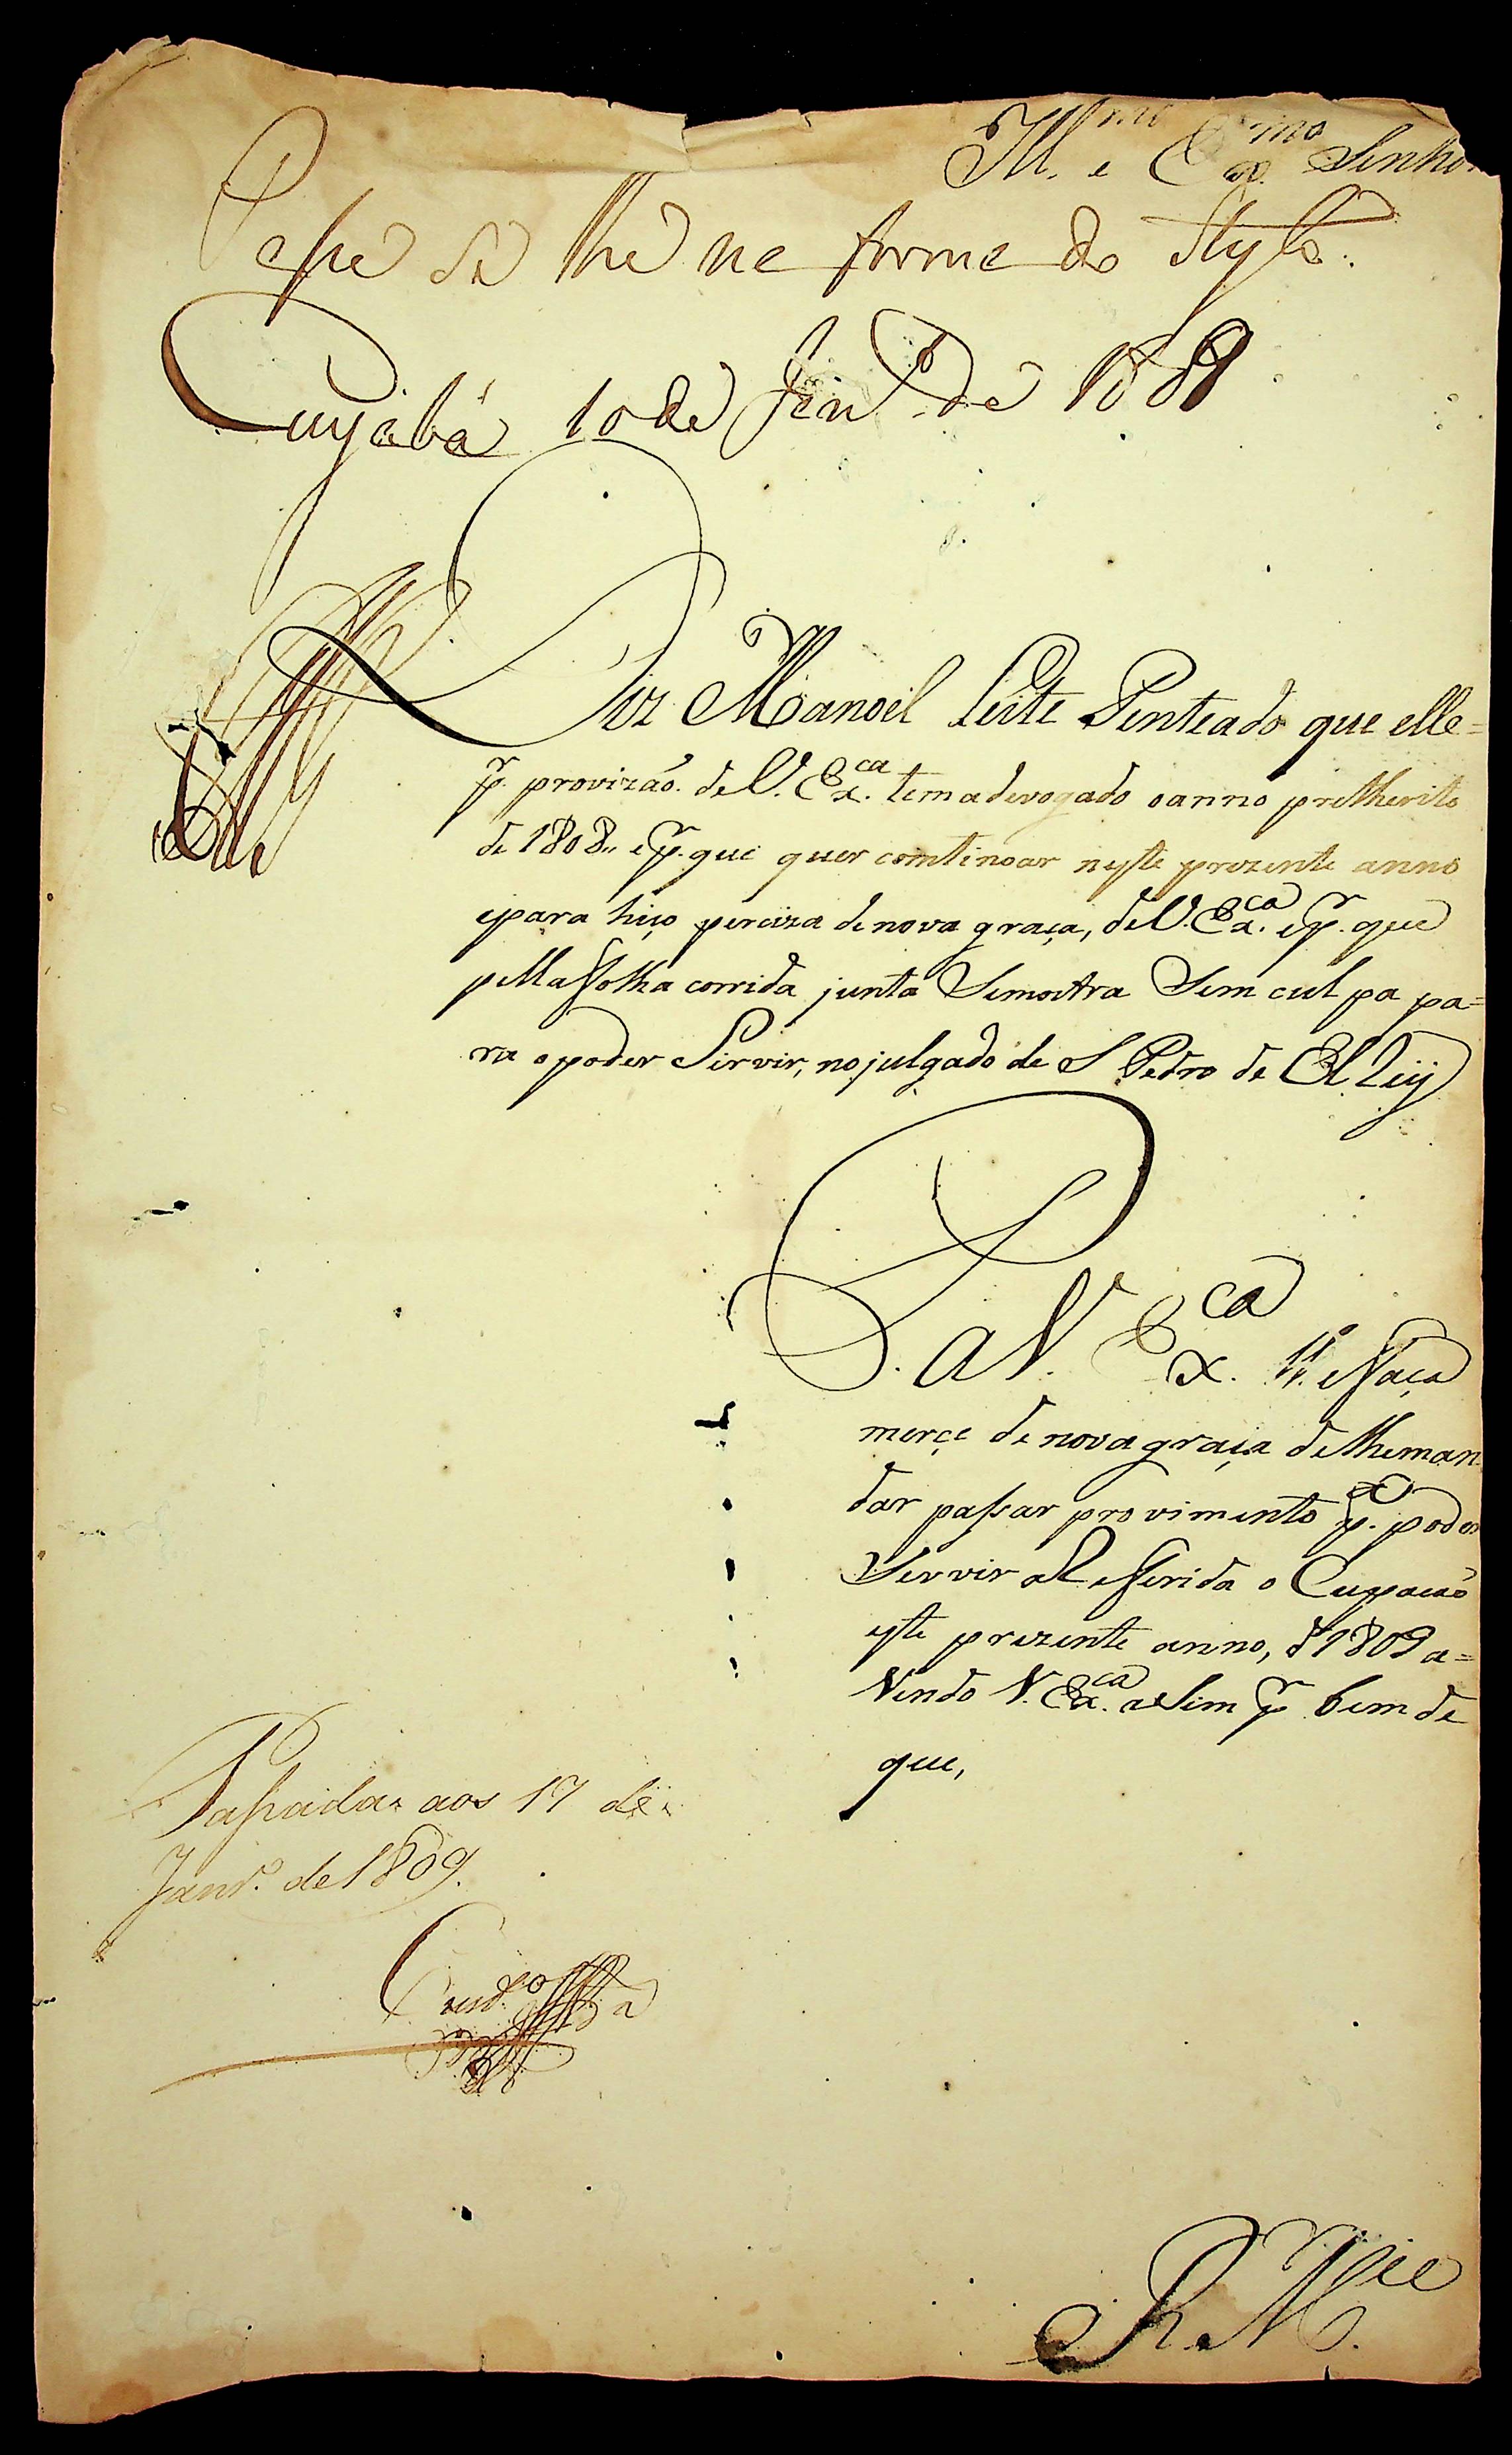 Ill.mo e Ex.mo Senhor
Passe se lhe na forma do Stylo.
Cuyabá 10 de Jan.ro de 1809
Diz Manoel Leite Penteado que elle=
p.r provizaõ. de V. Ex.ca tem adevogado o anno pretherito
de 1808,, e p.r que quer comtinoar neste prezente anno
epara hiço perciza de nova graça, de V. Ex.ca e p.r que
pella ffolha corrida junta Semostra Sem culpa pa=
ra o poder Servir, no julgado de S Pedro de El Reÿ
P. a V. Ex.ca
lhe ffaça
merçe de nova graça de lhe man
dar passar provimento p.a poder
Servir a Refferida o Cupacaõ
este prezente anno, d 1809 a=
Vendo V. Ex.ca asim p.r bem de
que,
Passada aos 17 de
Janr.o de 1809.
E R. M.cee